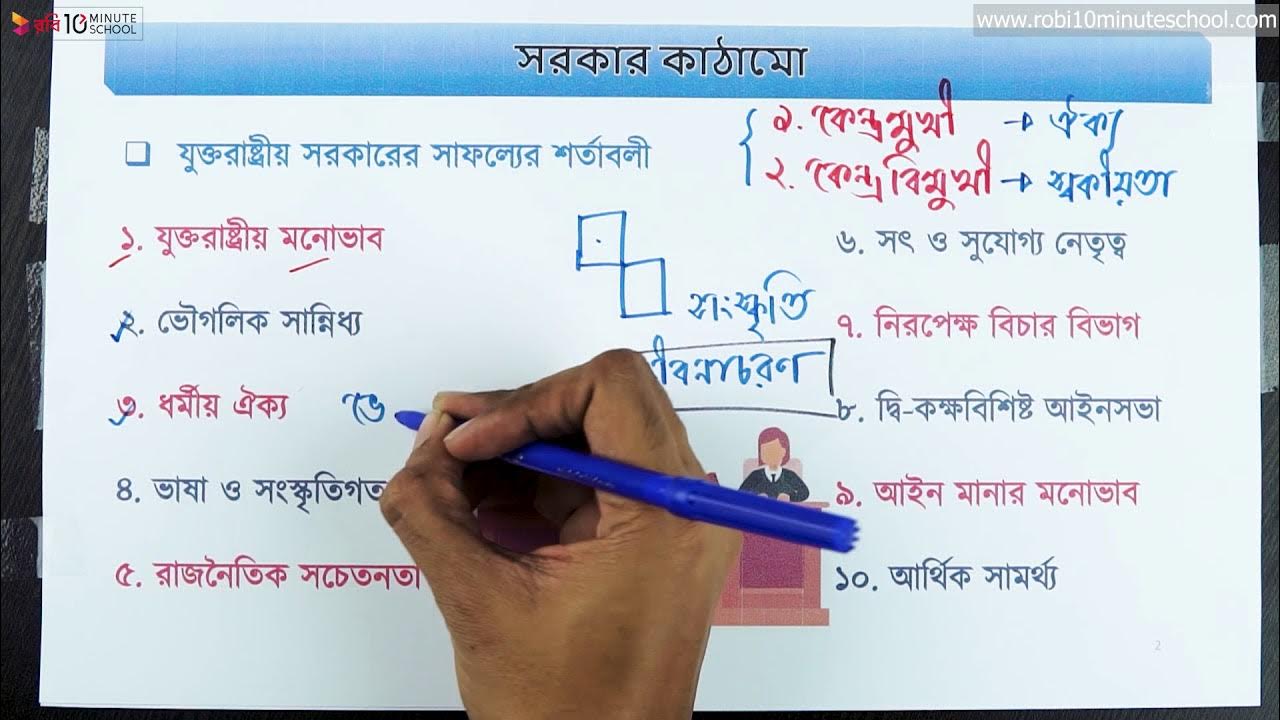 রবি 10 MINUTE SCHOOL
www.robi10minuteschool.com
সরকার কাঠামো
যুক্তরাষ্ট্রীয় সরকারের সাফল্যের শর্তাবলী
১. কেন্দ্রমুখী → ঐক্য
২. কেন্দ্রবিমুখী → স্বকীয়তা
১. যুক্তরাষ্ট্রীয় মনোভাব
২. ভৌগলিক সান্নিধ্য
৩. ধর্মীয় ঐক্য
৪. ভাষা ও সংস্কৃতিগত
৫. রাজনৈতিক সচেতনতা
সংস্কৃতি
৬. সৎ ও সুযোগ্য নেতৃত্ব
৭. নিরপেক্ষ বিচার বিভাগ
৮. দ্বি-কক্ষবিশিষ্ট আইনসভা
৯. আইন মানার মনোভাব
১০. আর্থিক সামর্থ্য
2